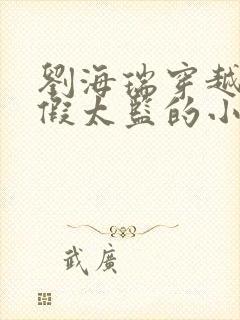 劉海瑞穿越
假太監的小
武廣